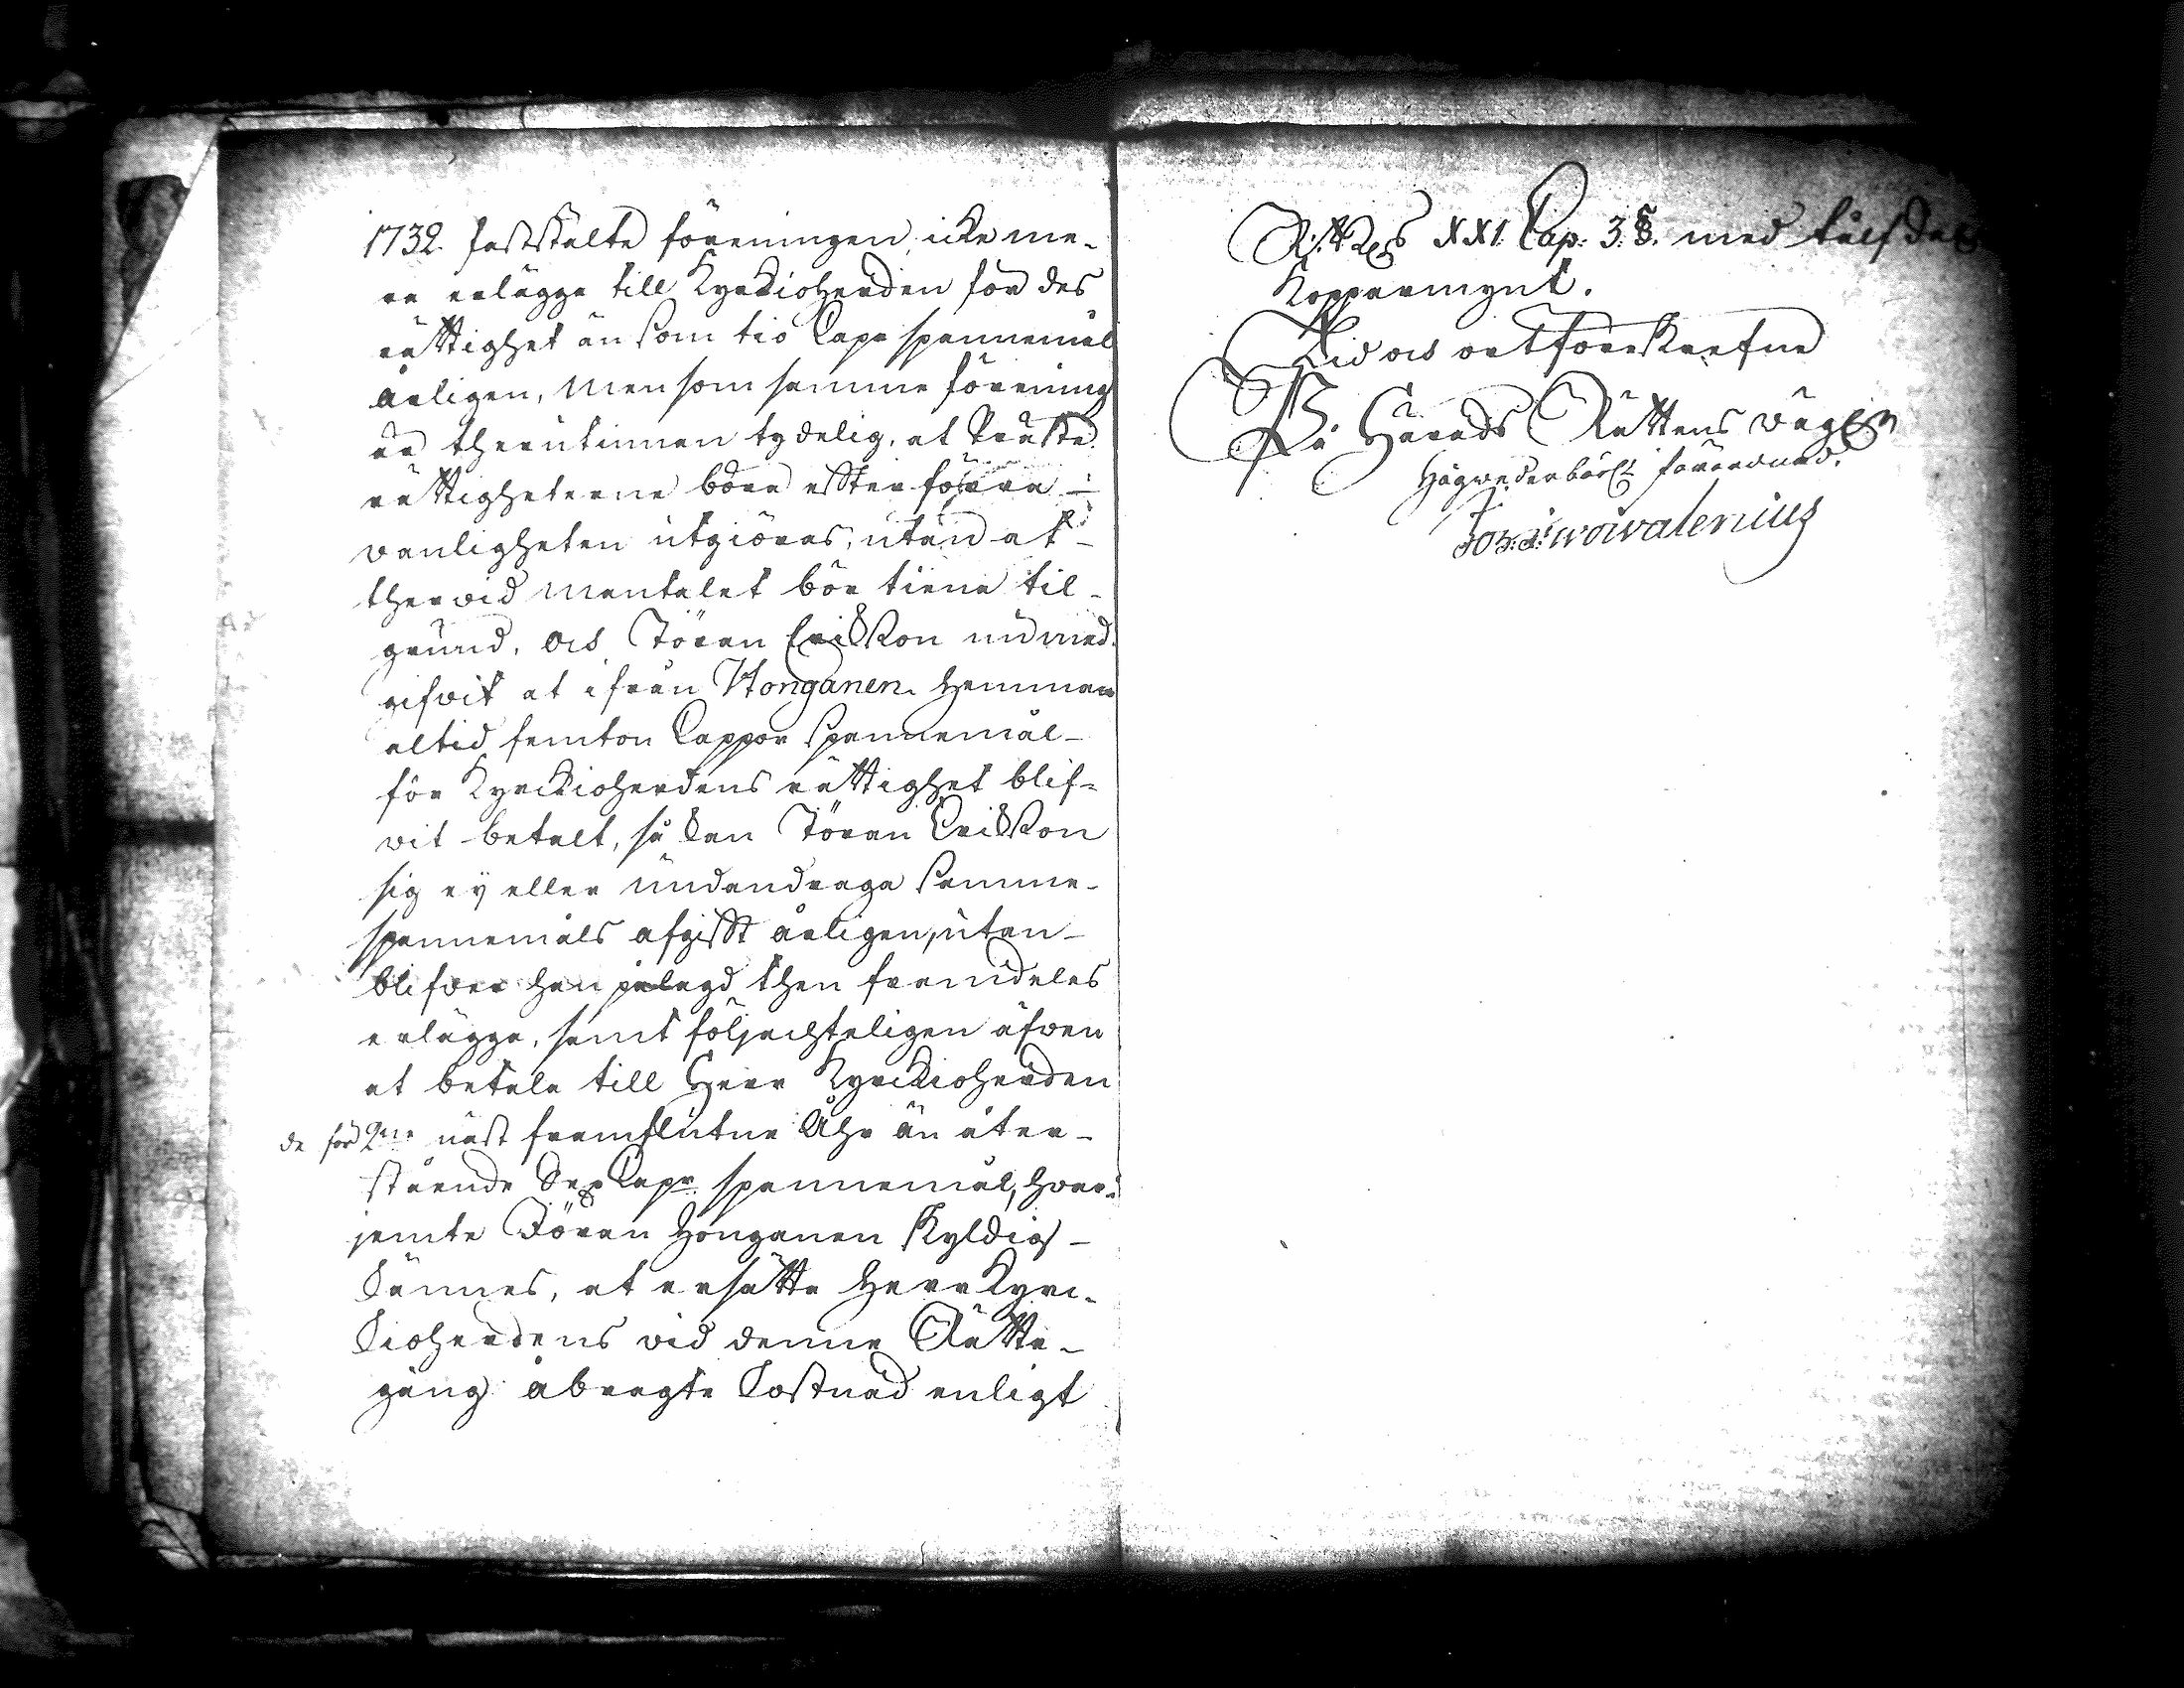 1732. fastställte föreningen icke me-
ra erlägga till Kyrckioherden för des
rättighet än som tio Capr spannemål
årligen, men som samme förening
är therutinnan tydelig, at Präste
rättigheterne böra effter förra
vanligheten utgiöras, utan at
thervid mantalet bör tiena til
grund, och Jöran Erickson nu med-
gifvit at ifrån Honganen hemman
altid femton Cappor spannemål
för Kyrckioherdens rättighet blif-
vit betalt, så kan Jöran Erickson
sig ey eller undandraga samme
spannemåls afgifft årligen, utan
blifver han pålagd then framdeles
erlägga, samt följachteligen äfven
at betala till Herr Kyrckioherden
de för 2ne näst framflutne Åhr än åter-
stående Sex Capr spannemål, hvar-
jemte Jöran Honganen skyldig
kännes, at ersätta Herr Kyrc-
kioherdens vid denne Rätte-
gång åbragte kostnad enligt
R:B XXI Cap: 3. §. med tolf daler
Koppermynt.
Tid och ort förskrefne
På Härads Rättens vägnar
Högvederbörl. förordnad.
Joh: A: woivalenius